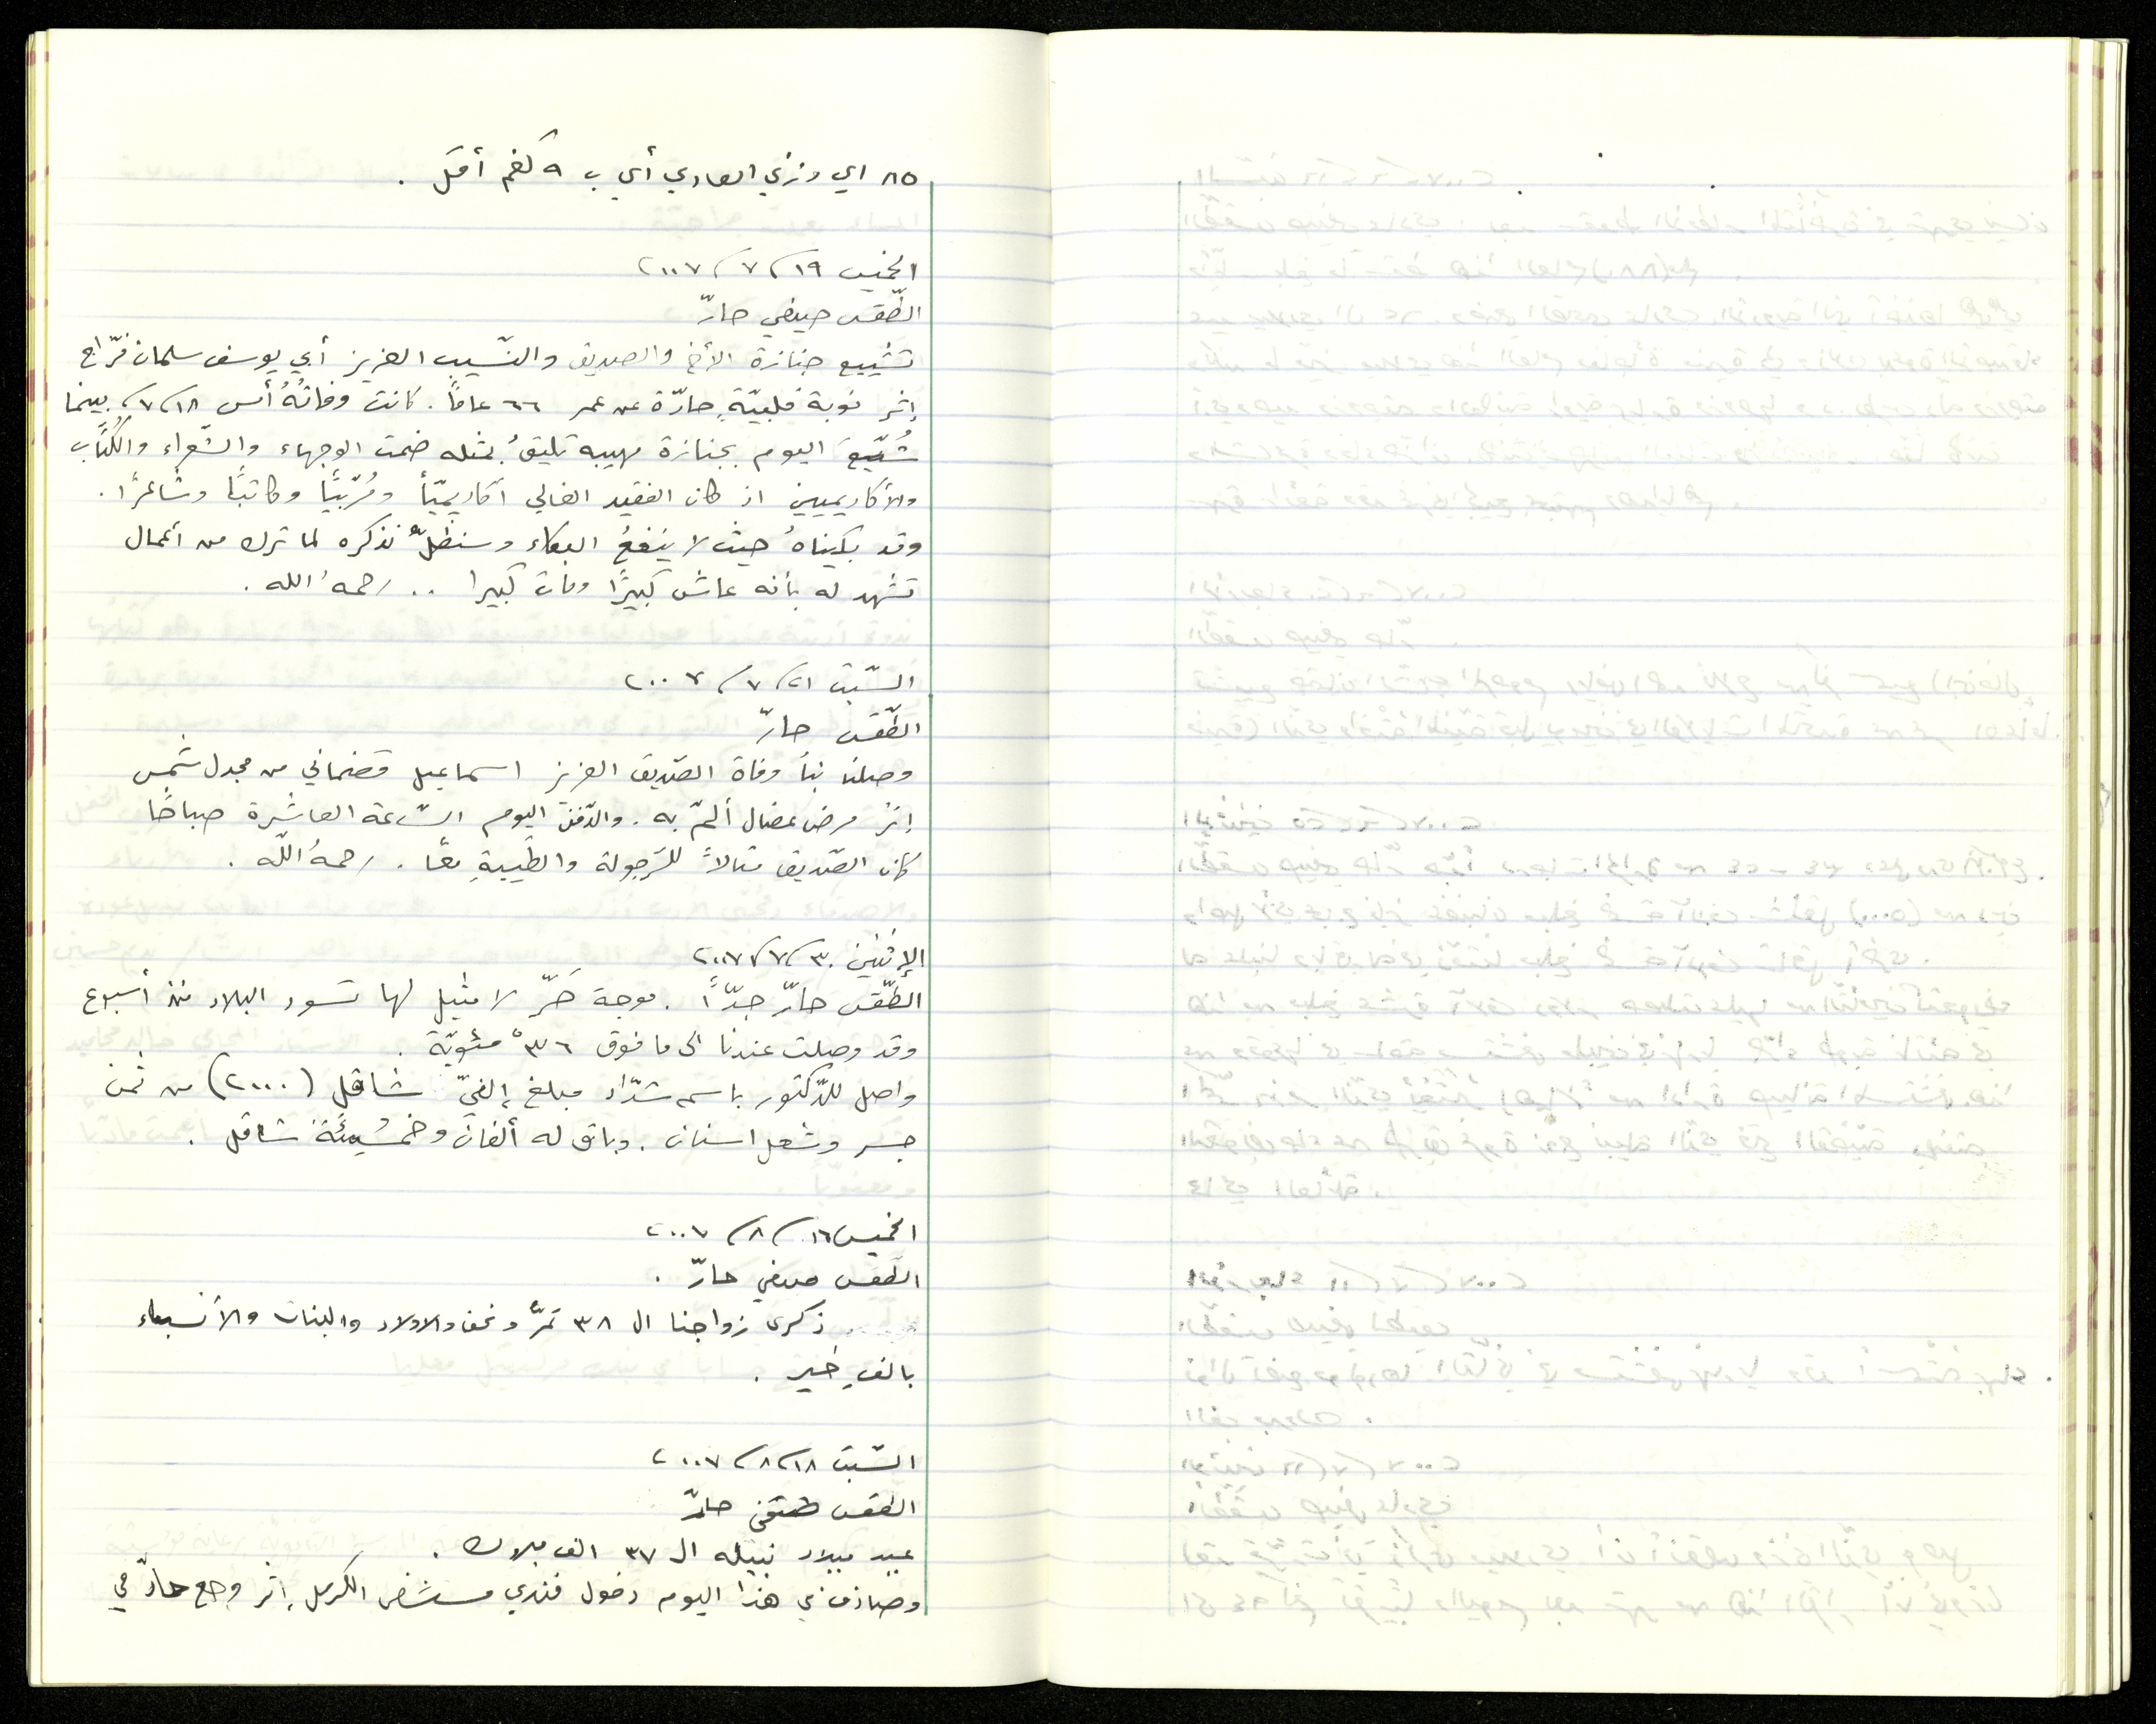 ٨٥ اي وزني العادي أي ب ٩ كغم أقل .
الخميس ١٩/٧/٢٠٠٧
الطّقس صيفي حارّ
تشييع جنازة الأخ والصديق والنّسيب العزيز أبي يوسف سلمان فرّاج
إثر نوبة قلبيّةٍ حادّة عن عمر ٦٦ عامًا. كانت وفاتُهُ أمس ١٨/٧، بينما
شُيّعَ اليوم بجنازة مهيبه تليقُ بمثله ضمت الوجهاء والشّعراء والكُتّاب
والأكاديميين اذ كان الفقيد الغالي اكاديميّأ ومُربّيًا وكاتبًا وشاعرًا.
وقد بكيناهُ حيث لا ينفعُ البكاء وسنظلّ نذكره لما ترك من أعمال
تشهد له بأنه عاش كبيرًا ومات كبيرا .. رحمهُ الله .
السّبت ٢١/٧/٢٠٠٧
الطّقس حارّ
وصلنا نبأ وفاة الصّديق العزيز اسماعيل قضماني من مجدل شمس
إثر مرض عضال ألمّ به. والدّفن اليوم السّاعة العاشرة صباحًا
كان الصّديق مثالاً للرّجولة والطّيبةِ معًا. رحمهُ اللّه .
الإثنين ٣٠/٧/٢٠٠٧
الطّقس حارّ جدّاً . موجة حَرّ لا مثيل لها تسود البلاد منذ أسبوع
وقد وصلت عندنا الى ما فوق ٣٦° مئويّة .
واصل للدّكتور باسم شدّاد مبلغ إلفيّ شاقل (٢٠٠٠) من ثمن
جسر وشغل اسنان. وباق له ألفان وخمسُمِئَة شاقل .
الخميس ١٦/٨/٢٠٠٧
الطقس صيفي حارّ .
ذكرى زواجنا ال ٣٨ تمرُّ ونحن والاولاد والبنات والأنسباء
بالف خير .
السّبت ١٨/٨/٢٠٠٧
الطقس حارّ
عيد ميلاد نبيله ال ٣٧ الف مبروك .
وصادف في هذا اليوم دخول فندي مستشفى الكرمل إثر وجع حادّ في